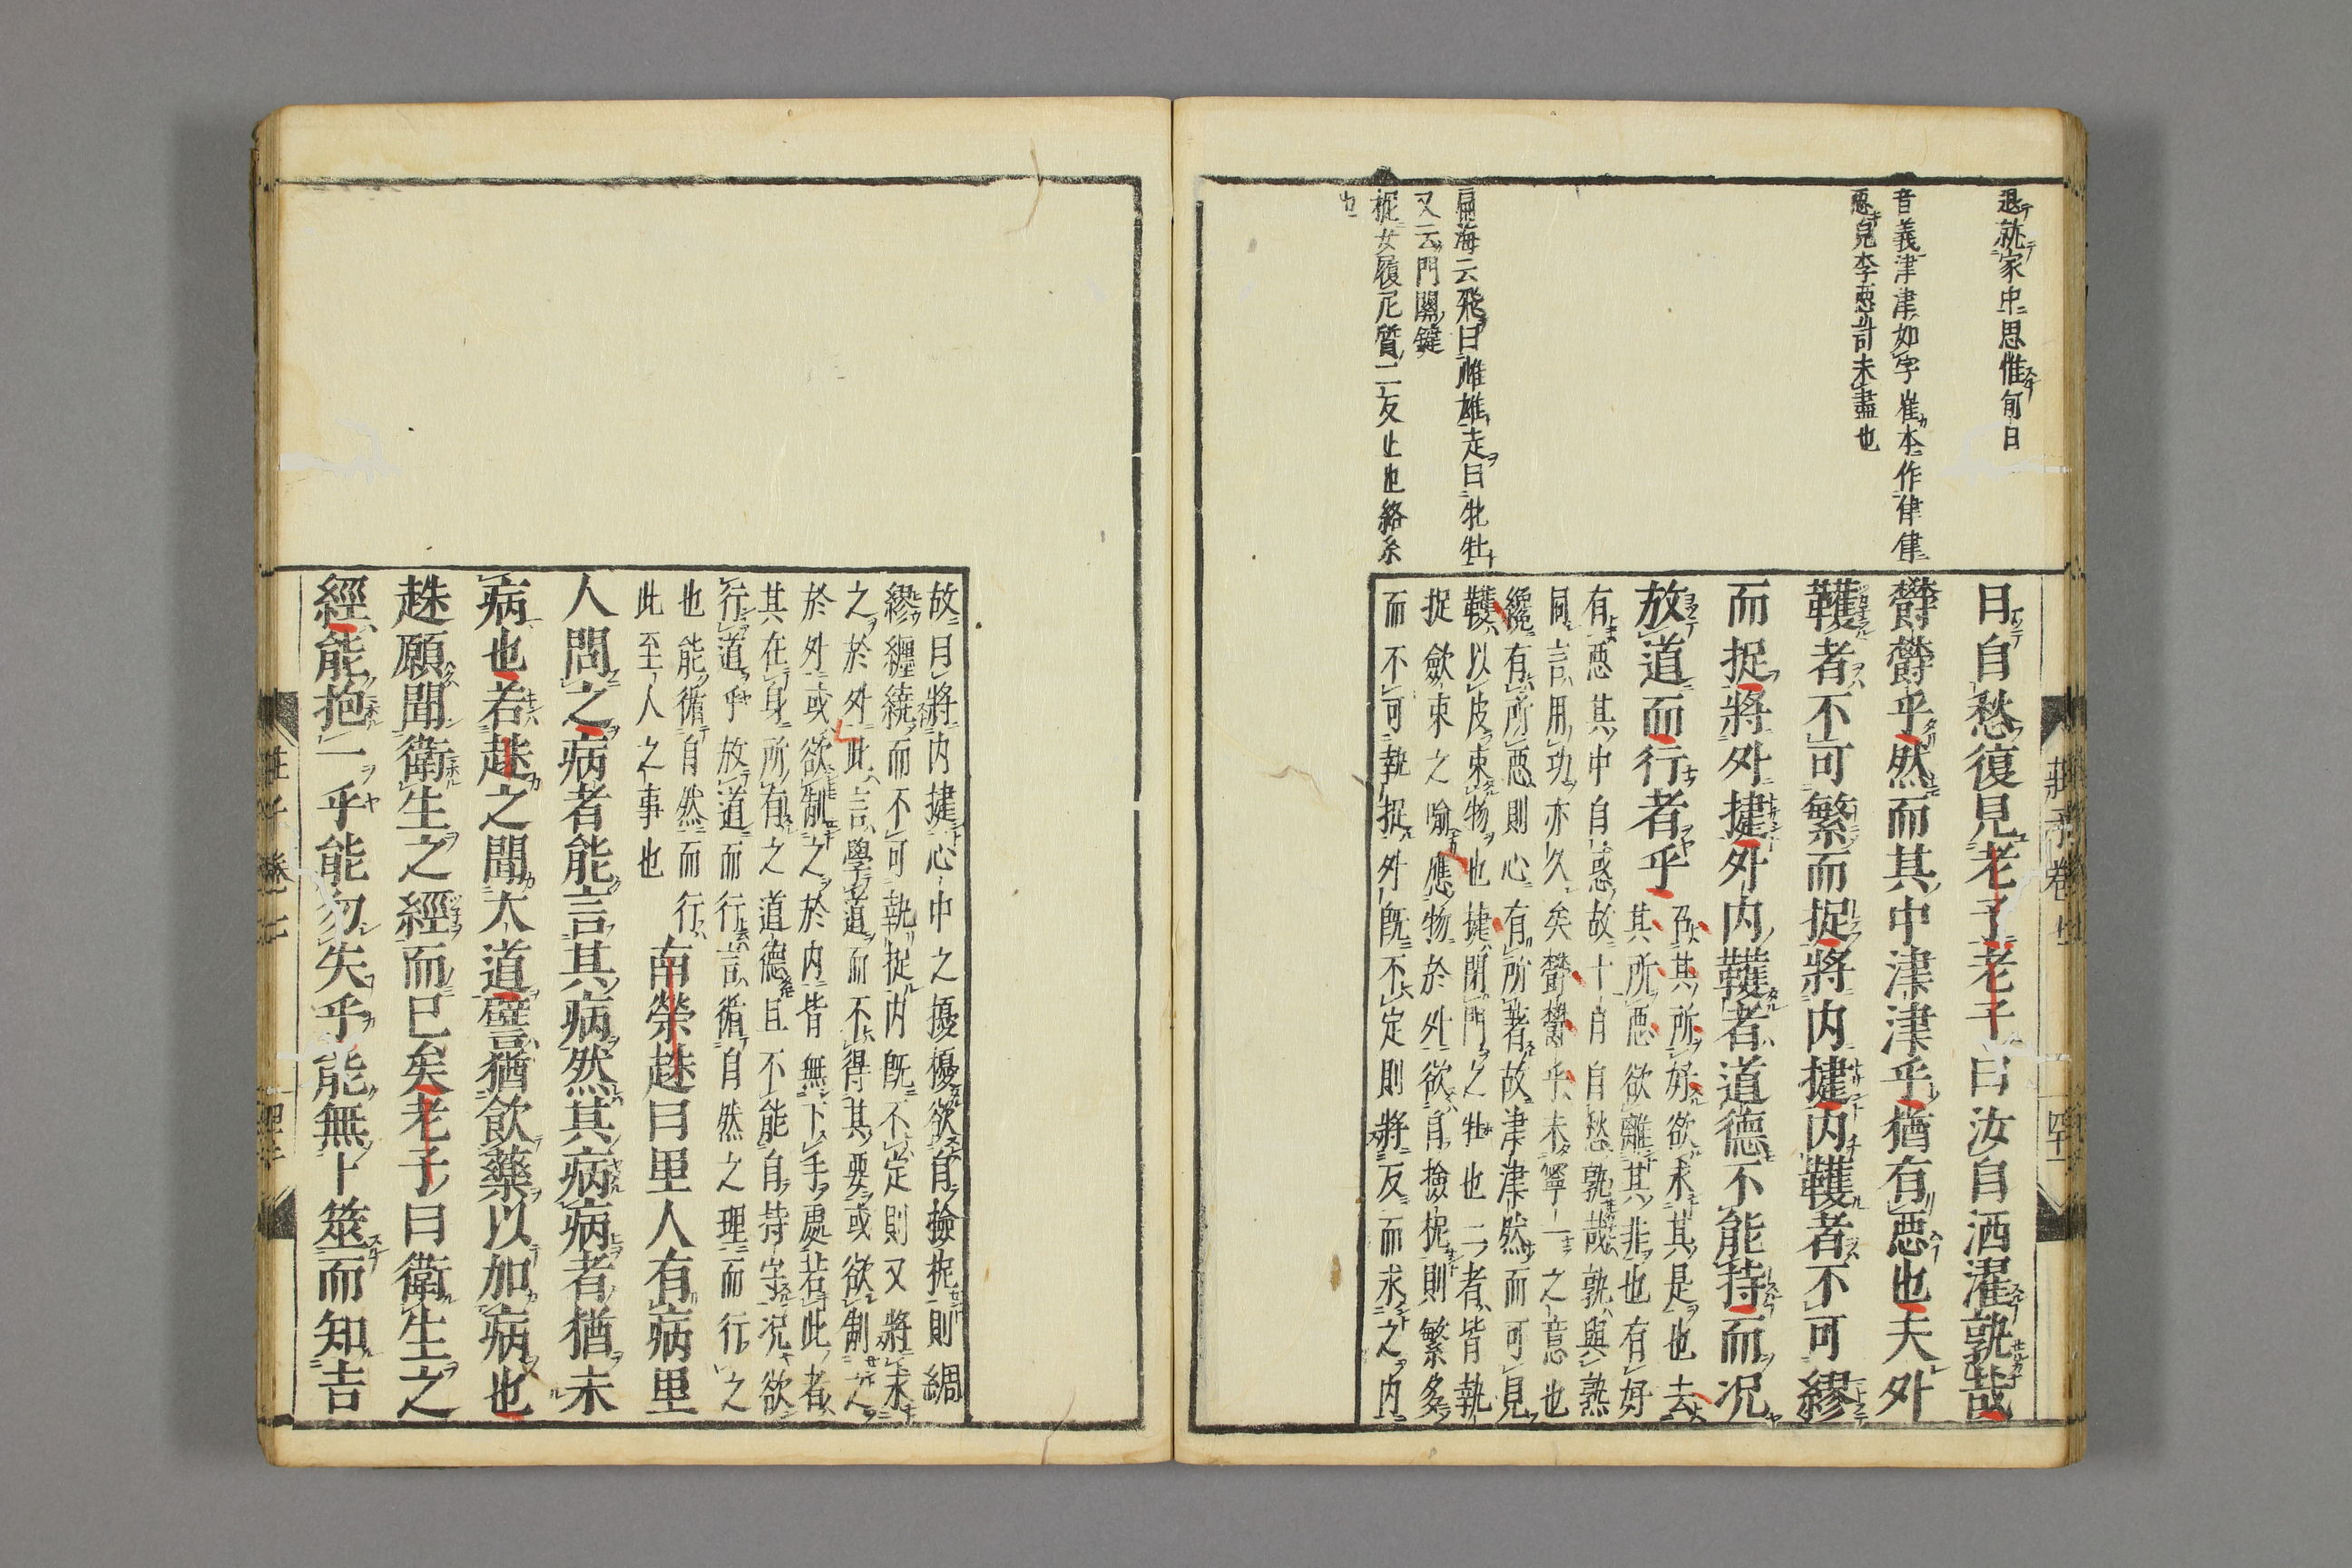 退就家中思惟旬日
音義津津如字崔本作律律
惡皃李惡計未盡也
扁海云飛曰雌雄走曰牝牡
又云門關鍵
柅女履尼質二反止也絡糸
也
日自愁復見老子老子曰汝自洒濯孰哉
欝欝乎然而其中津津乎猶有惡也夫外
韄者不可繁而捉將内揵内韄者不可繆
而捉將外揵外内韄者道德不能持而況
放道而行者乎
召其所好欲求其是也去
其所惡欲離其非也有好
有惡其中自惑故十日自愁孰哉孰與熟
同言用功亦久矣欝欝乎未寧一之意也
纔有所惡則心有所著故津津然而可見
韄以皮束物也揵閉門之牡也二者皆執
捉歛束之喻應物於外欲自撿柅則繁多
而不可執捉外既不定則將反而求之内
莊子卷七
四十一
故曰將内揵心中之擾擾欲自撿柅則綢
繆纏繞而不可執捉内既不定則又將求
之於外此言學道而不得其要或欲制之
於外或欲制之於内皆無下手處若此者
其在身所有之道德且不能自持守況欲
行道乎放道而行言循自然之理而行之
也能循自然而行
此至人之事也
南榮趎曰里人有病里
人問之病者能言其病然其病病者猶未
病也若趎之聞大道譬猶飲藥以加病也
趎願聞衛生之經而已矣老子曰衛生之
經能抱一乎能勿失乎能無卜筮而知吉